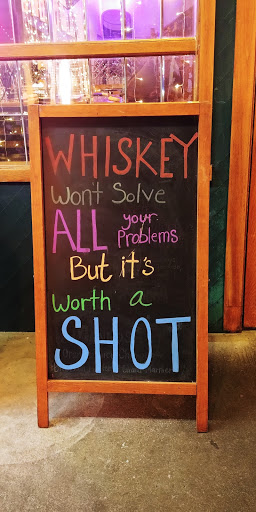 WHISKEY
Won't Solve
ALL your Problems
But it's
Worth a
SHOT